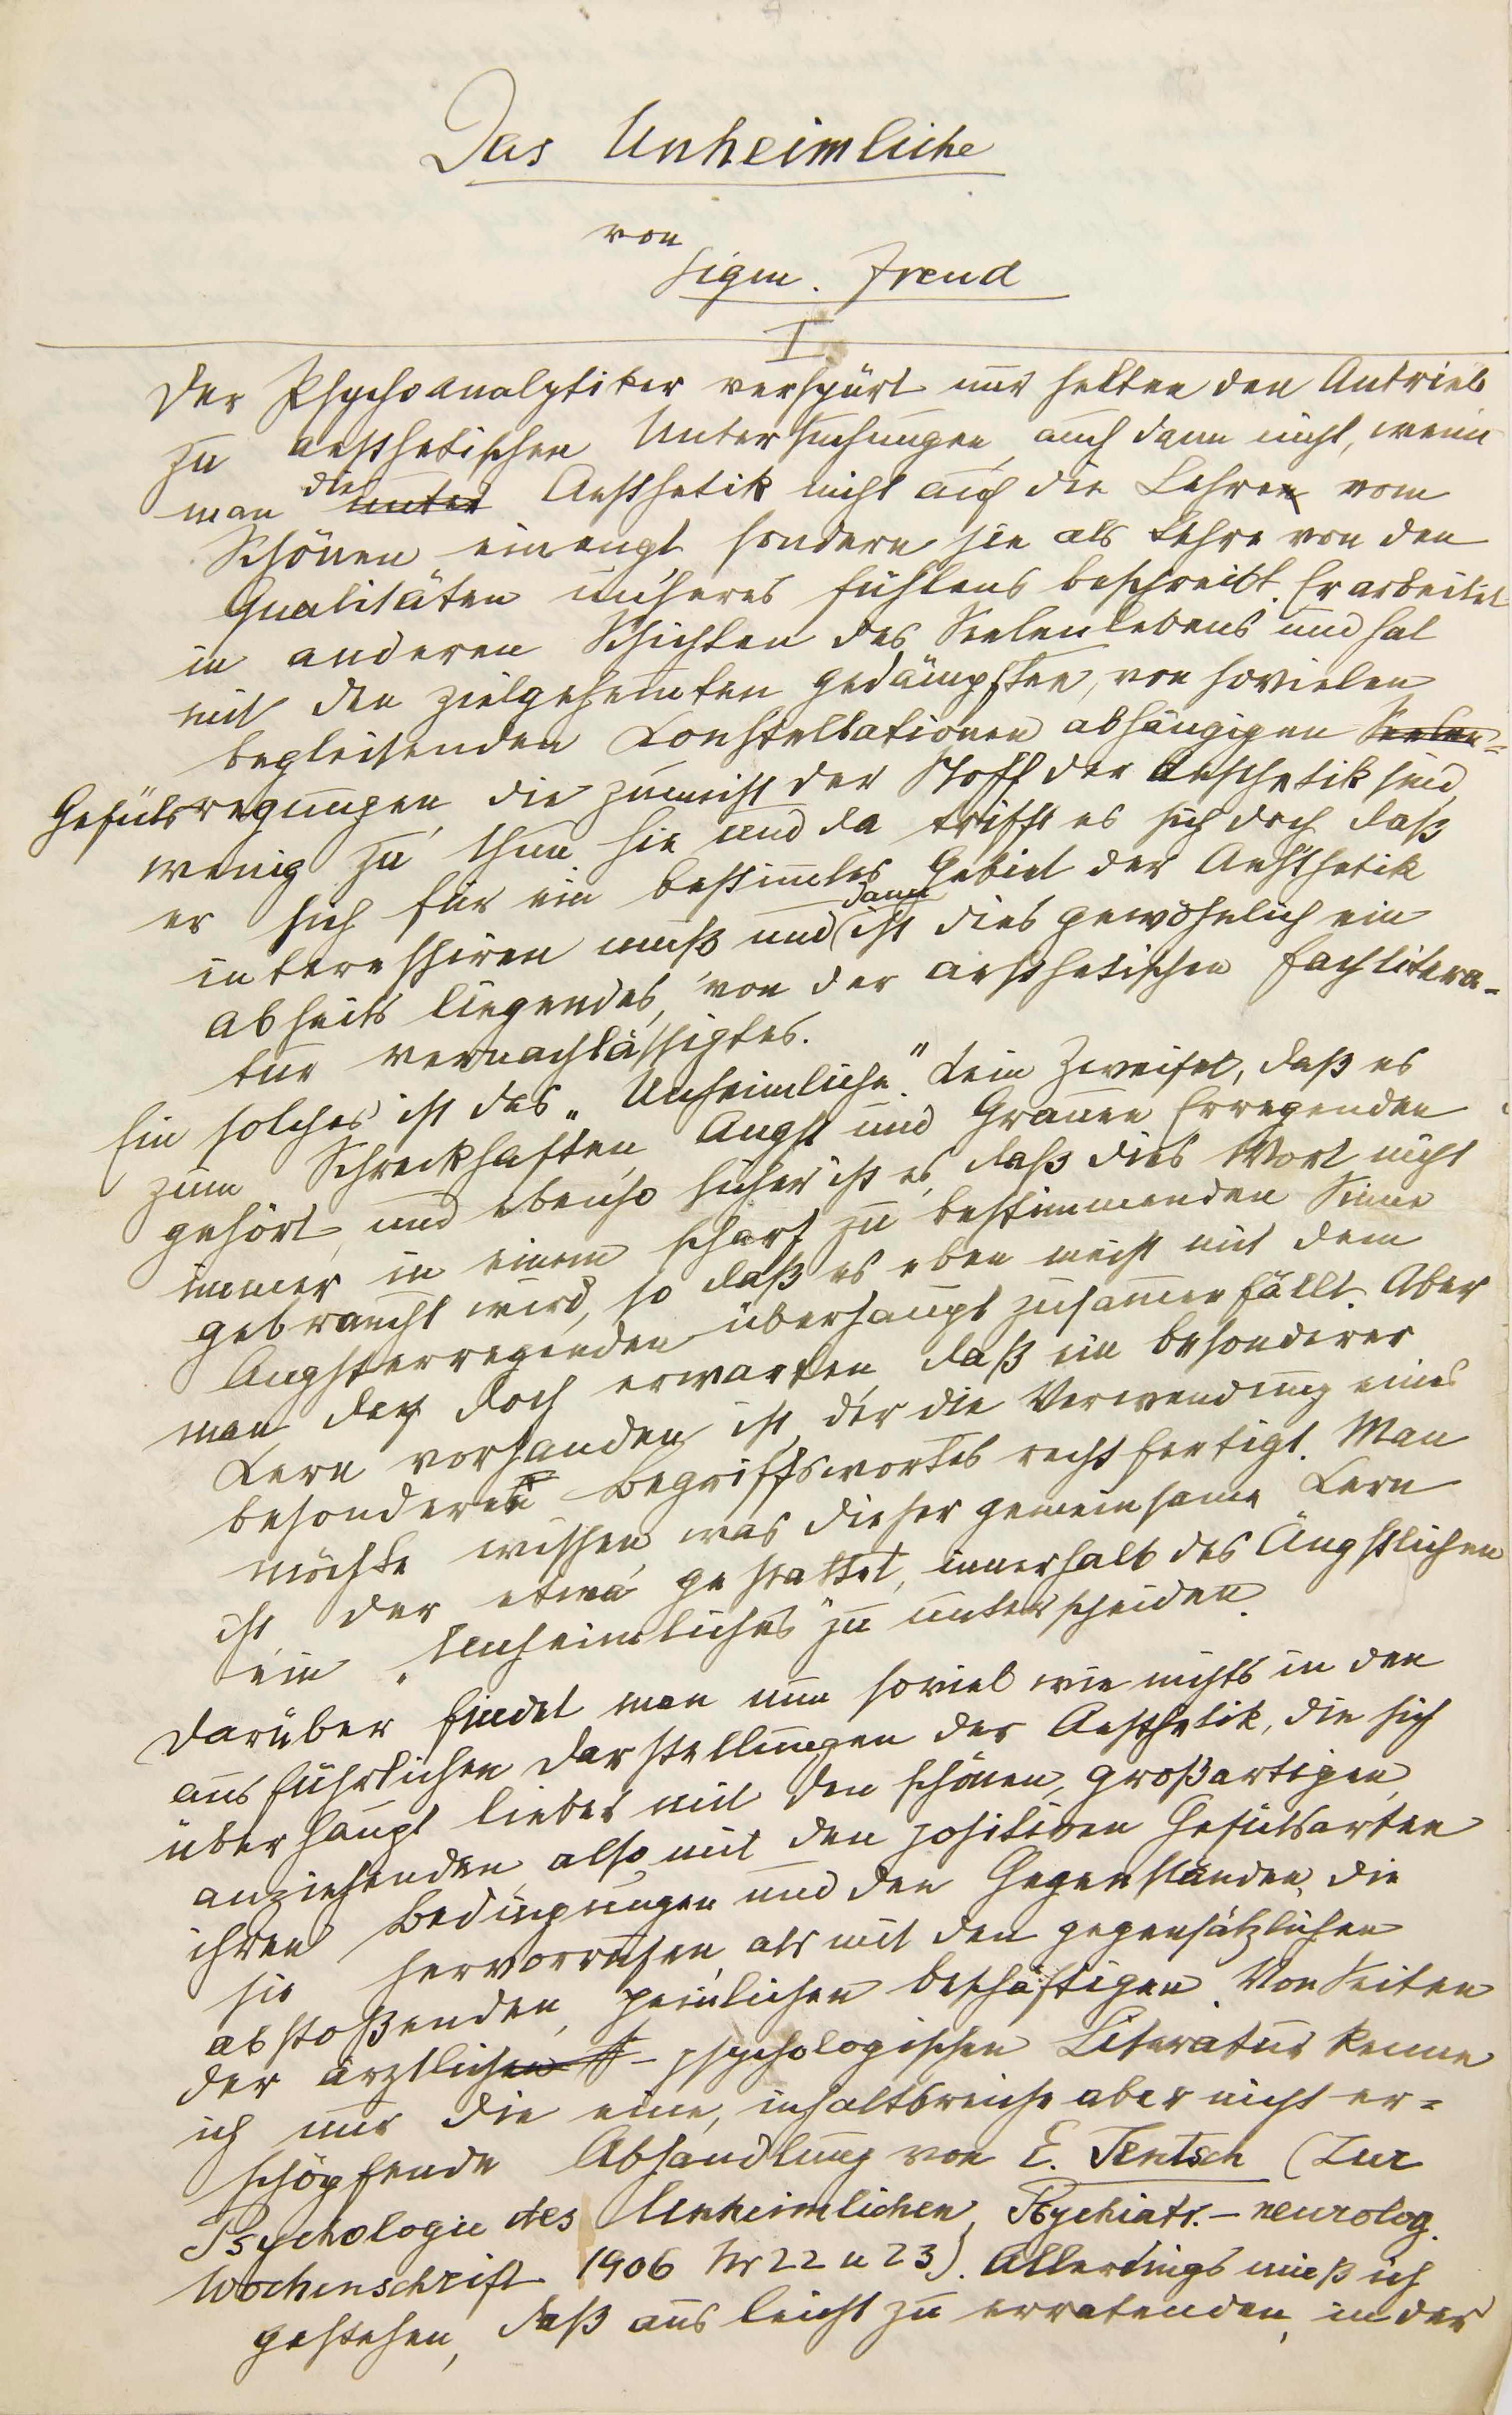 Das Unheimliche
von
Sigm. Freud
I
Der Psychoanalytiker verspürt nur selten den Antrieb
zu aesthetischen Untersuchungen, auch dann nicht, wenn
man die unter Aesthetik nicht auf die Lehren vom
Schönen einengt sondern sie als Lehre von den
Qualitäten unseres Fühlens beschreibt. Er arbeitet
in anderen Schichten des Seelenlebens und hat
mit den zielgehemmten gedämpften, von sovielen
begleitenden Konstellationen abhängigen Seelen-
Gefülsregungen, die zumeist der Stoff der Aesthetik sind,
wenig zu thun. Hie und da trifft es sich doch, daß
er sich für ein bestimmtes Gebiet der Aesthetik
interessiren muß und dann ist dies gewöhnlich ein
abseits liegendes, von der aesthetischen Fachlitera-
tur vernachlässigtes.
Ein solches ist das „Unheimliche“. Kein Zweifel, daß es
zum Schreckhaften, Angst und Grauen Erregenden
gehört, und ebenso sicher ist es, daß dies Wort nicht
immer in einem scharf zu bestimmenden Sinne
gebraucht wird, so daß es eben meist mit dem
Angsterregenden überhaupt zusammenfällt. Aber
man darf doch erwarten, daß ein besonderer
Kern vorhanden ist, der die Verwendung eines
besonderen Begriffswortes rechtfertigt. Man
möchte wissen, was dieser gemeinsame Kern
ist, der etwa gestattet, innerhalb des Ängstlichen
ein „Unheimliches“ zu unterscheiden.
Darüber findet man nun soviel wie nichts in den
ausführlichen Darstellungen der Aesthetik, die sich
überhaupt lieber mit den schönen, großartigen,
anziehenden, also mit den positiven Gefülsarten
ihren Bedingungen und den Gegenständen, die
sie hervorrufen, als mit den gegensätzlichen
abstoßenden, peinlichen beschäftigen. Von Seiten
der ärztlichen - psychologischen Literatur kenne
ich nur die eine, inhaltsreiche aber nicht er-
schöpfende Abhandlung von E. Jentsch (Zur
Psychologie des Unheimlichen, Psychiatr.-neurolog.
Wochenschrift 1906 Nr 22 u 23). Allerdings muß ich
gestehen, daß aus leicht zu erratenden, in der